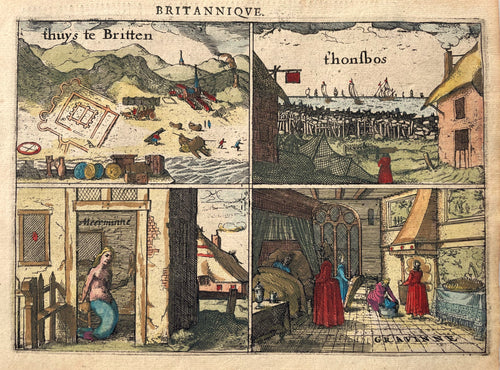 BRITANNIQVE.
thuys te Britten
thonsbos
Meerminne
GRAVINNE